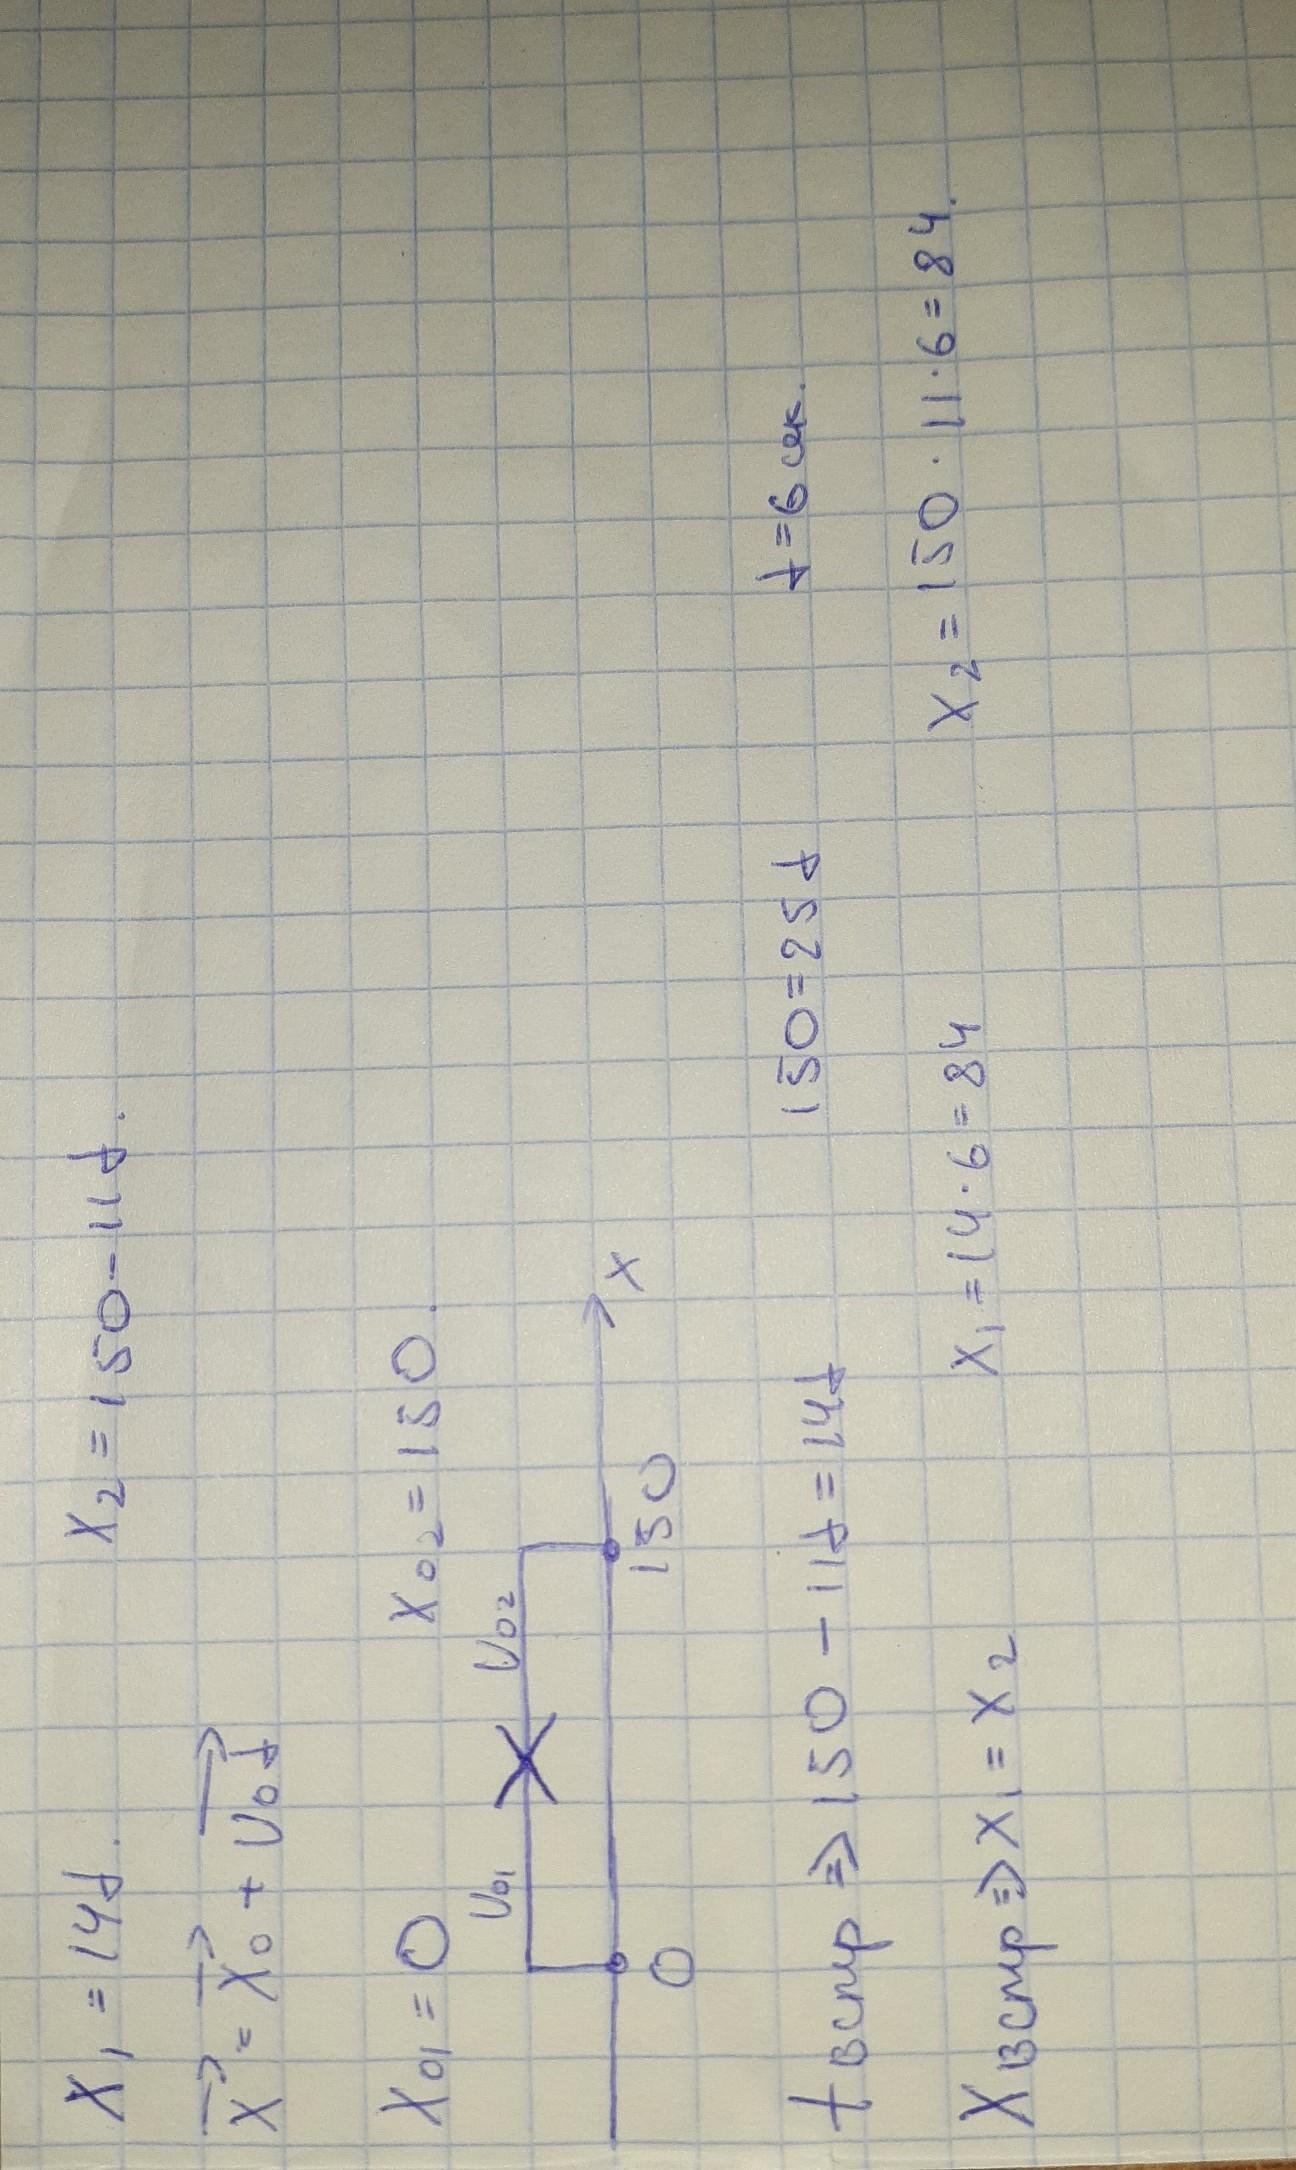 X₁ = 14t. X₂ = 150 - 11t.
X⃗ = X⃗₀ + U₀t⃗
X₀₁ = 0 X₀₂ = 150.
U₀₁ U₀₂
0 150 X
t встр ⇒ 150 - 11t = 14t 150 = 25t t = 6 сек.
X встр ⇒ X₁ = X₂ X₁ = 14 · 6 = 84 X₂ = 150 · 11 · 6 = 84.